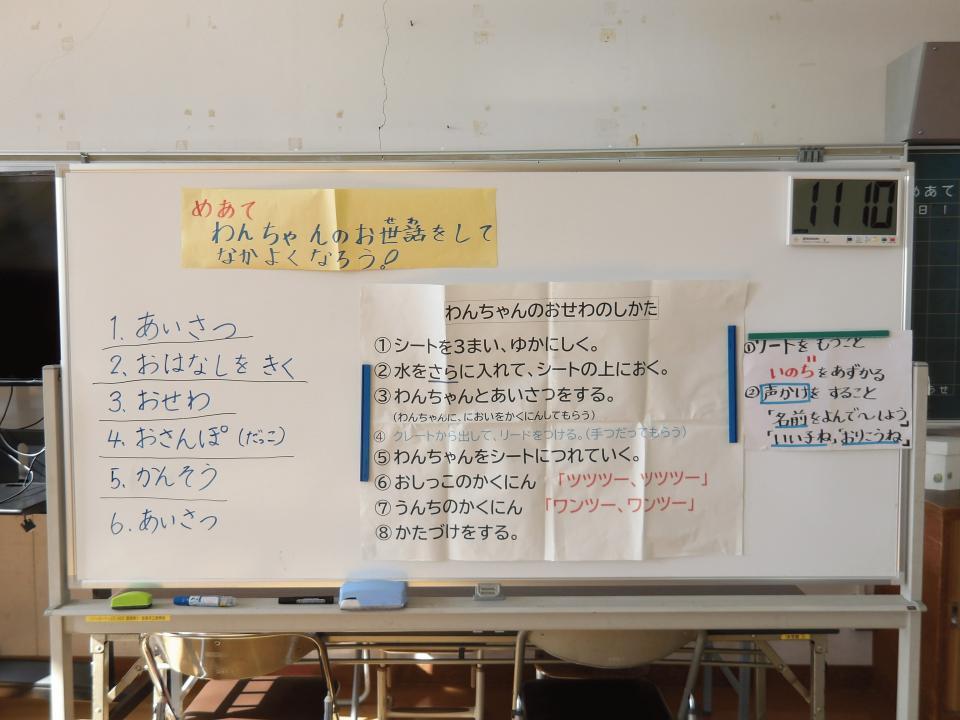 めあて
わんちゃんのお世話をして
せわ
なかよくなろう!
11 10
1. あいさつ
2. おはなしを きく
3. おせわ
4. おさんぽ(だっこ)
5. かんそう
6. あいさつ
わんちゃんのおせわのしかた
① シートを3まい、ゆかにしく。
② 水をさらに入れて、シートの上におく。
③ わんちゃんとあいさつをする。
(わんちゃんに、においをかくにんしてもらう)
④ クレートから出して、リードをつける。(手つだってもらう)
⑤ わんちゃんをシートにつれていく。
⑥ おしっこのかくにん 「ツツツー、ツツツー」
⑦ うんちのかくにん 「ワンツー、ワンツー」
⑧ かたづけをする。
①リードをもつこと
"いのち"をあずかる
②声かけをすること
「名前をよんで〜しよう」
「いい子ね、おりこうね」
めあて
日!